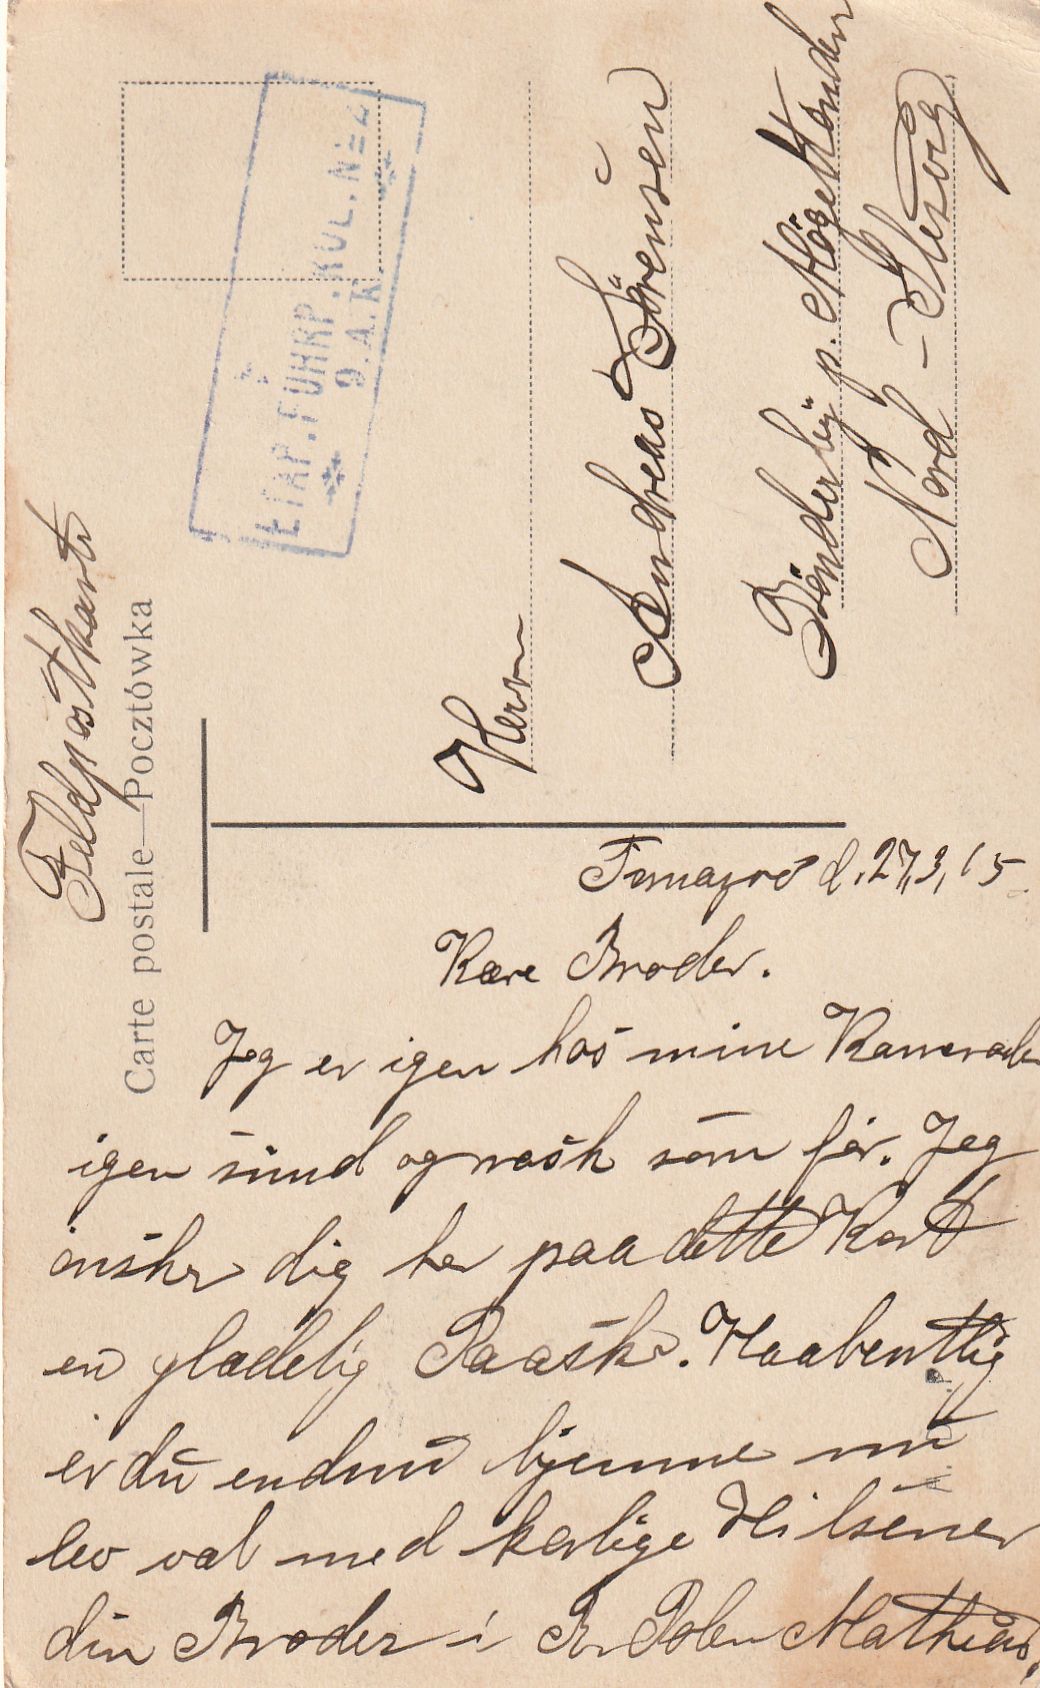 Feldpostkarte
Carte postale—Pocztówka
ETAP. FUHRP. KOL. No 2
9. A. K.
Herrn
Andreas Sörensen
Bönderby p. Mögeltondern
Nord-Slesvig
d. 27,3,15
Kære Broder.
Jeg er igen hos mine Kamerader
igen sund og rask som før. Jeg
ønsker dig her paa dette Kort
en glædelig Paaske. Haabentlig
er du endnu hjemme nu
lev vel med kærlige Hilsener
din Broder i R. Polen Mathias.